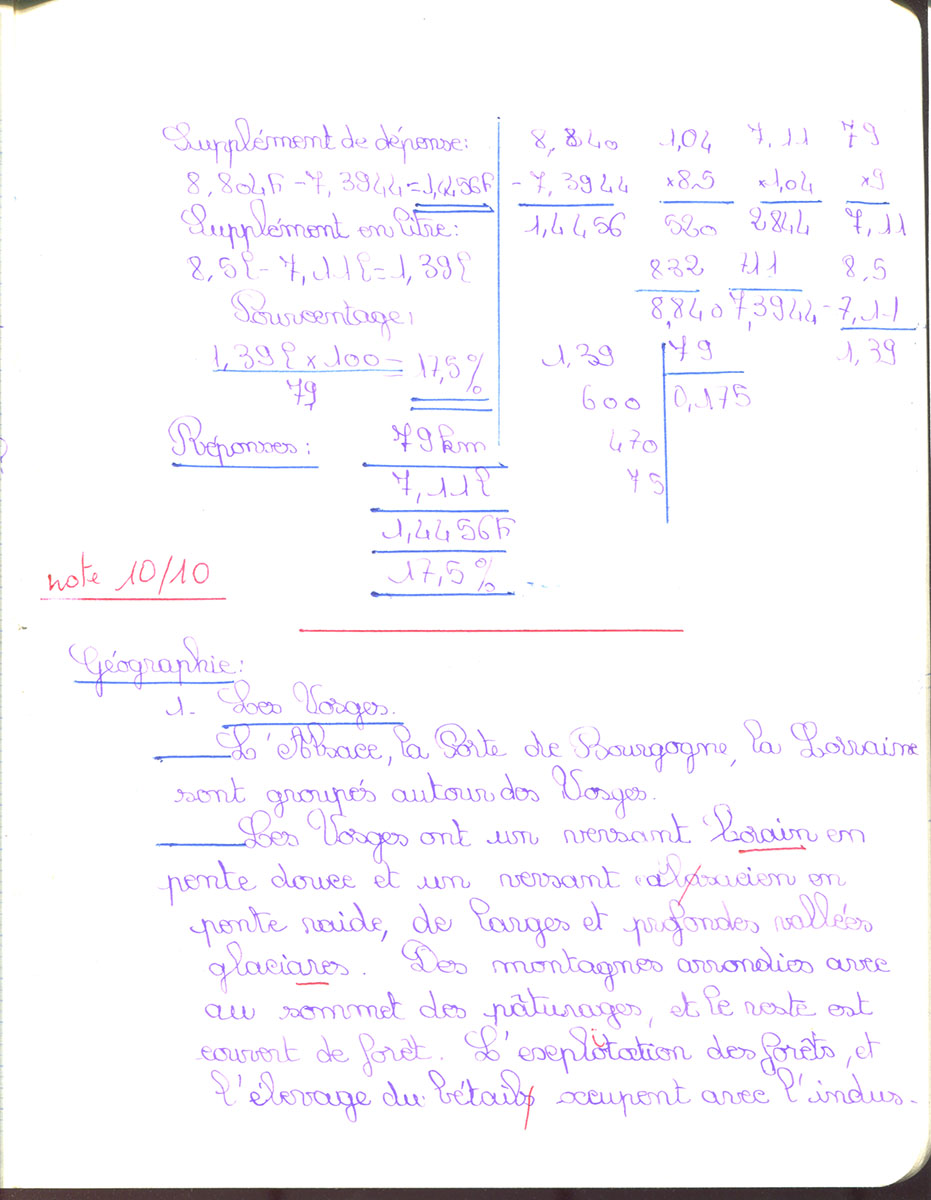 Supplément de dépense:
8,804F - 7,3944 = 1,4456F
Supplément en litre:
8,5l - 7,11l = 1,39l
Pourcentage:
1,39l x 100 = 17,5%
79
Réponses: 79km
7,11l
1,4456F
17,5%
8,840 1,04 7,11 79
- 7,3944 x8.5 x1,04 x9
1,4456 520 2844 7,11
832 711 8,5
8,840 7,3944 - 7,11
1,39 79 1,39
600 0,175
470
75
note 10/10
Géographie:
1. Les Vosges.
L'Alsace, la Porte de Bourgogne, la Lorraine
sont groupés autour des Vosges.
Les Vosges ont un versant Lorain en
pente douce et un versant alsacien en
pente raide, de larges et profondes vallées
glaciares. Des montagnes arrondies avec
au sommet des pâturages, et le reste est
couvert de forêt. L'exploitation des forêts, et
l'élevage du bétail occupent avec l'indus-